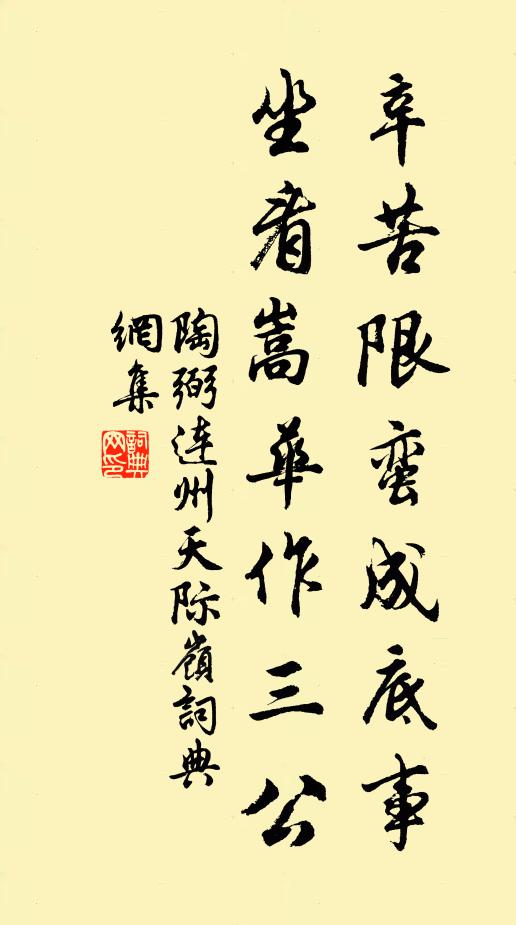 辛苦限蛮成底事
坐看嵩華作三公
陶弼连州天际嶺詞典
網集
詞典網印